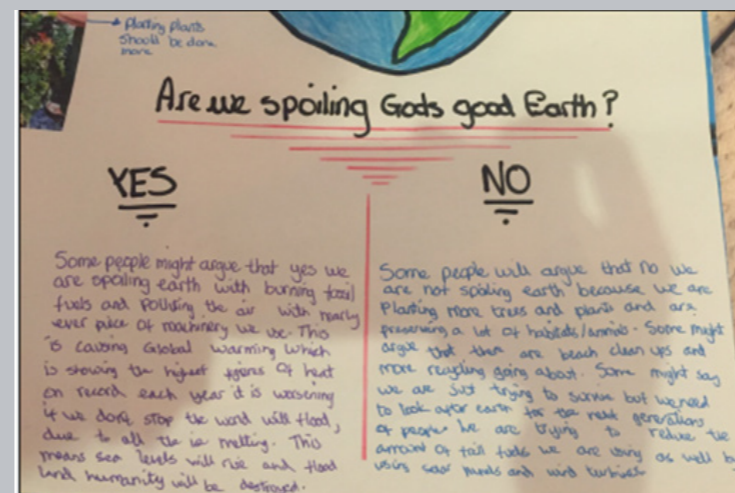 Planting plants
should be done
more
Are we spoiling Gods good Earth?
YES
NO
Some people might argue that yes we
are spoiling earth with burning fossil
fuels and polluting the air with nearly
ever piece of machinery we use. This
is causing Global warming which
is showing the highest of heat
on record each year it is worsening
if we dont stop the world will flood,
due to all the ice melting. This
means sea levels will rise and flood
land humanity will be destroyed.
Some people will argue that no we
are not spoiling earth because we are
Planting more trees and plants and are
preserving a lot of habitats/animals. Some might
argue that there are beach clean ups and
more recycling going about. Some might say
we are just trying to survive but we need
to look after earth for the next generations
of people. We are trying to reduce the
amount of we are using as well by
using and wind turbines